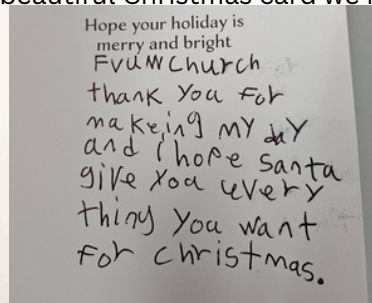 beautiful Christmas card we
Hope your holiday is
merry and bright
FvUMChurch
thank You For
makeing MY daY
and I hope Santa
give You every
thing You want
For christmas.